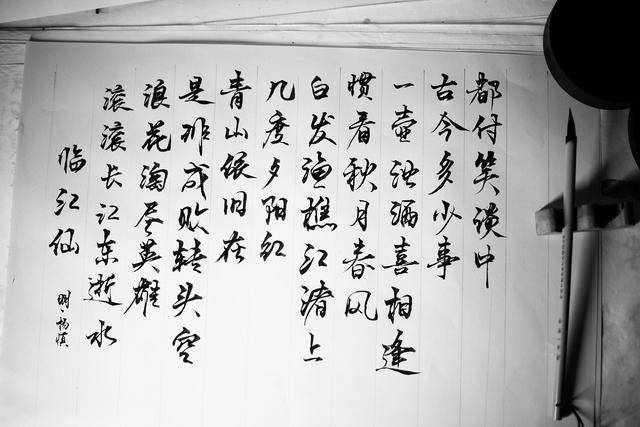 临江仙
明·杨慎
滚滚长江东逝水
浪花淘尽英雄
是非成败转头空
青山依旧在
几度夕阳红
白发渔樵江渚上
惯看秋月春风
一壶浊酒喜相逢
古今多少事
都付笑谈中